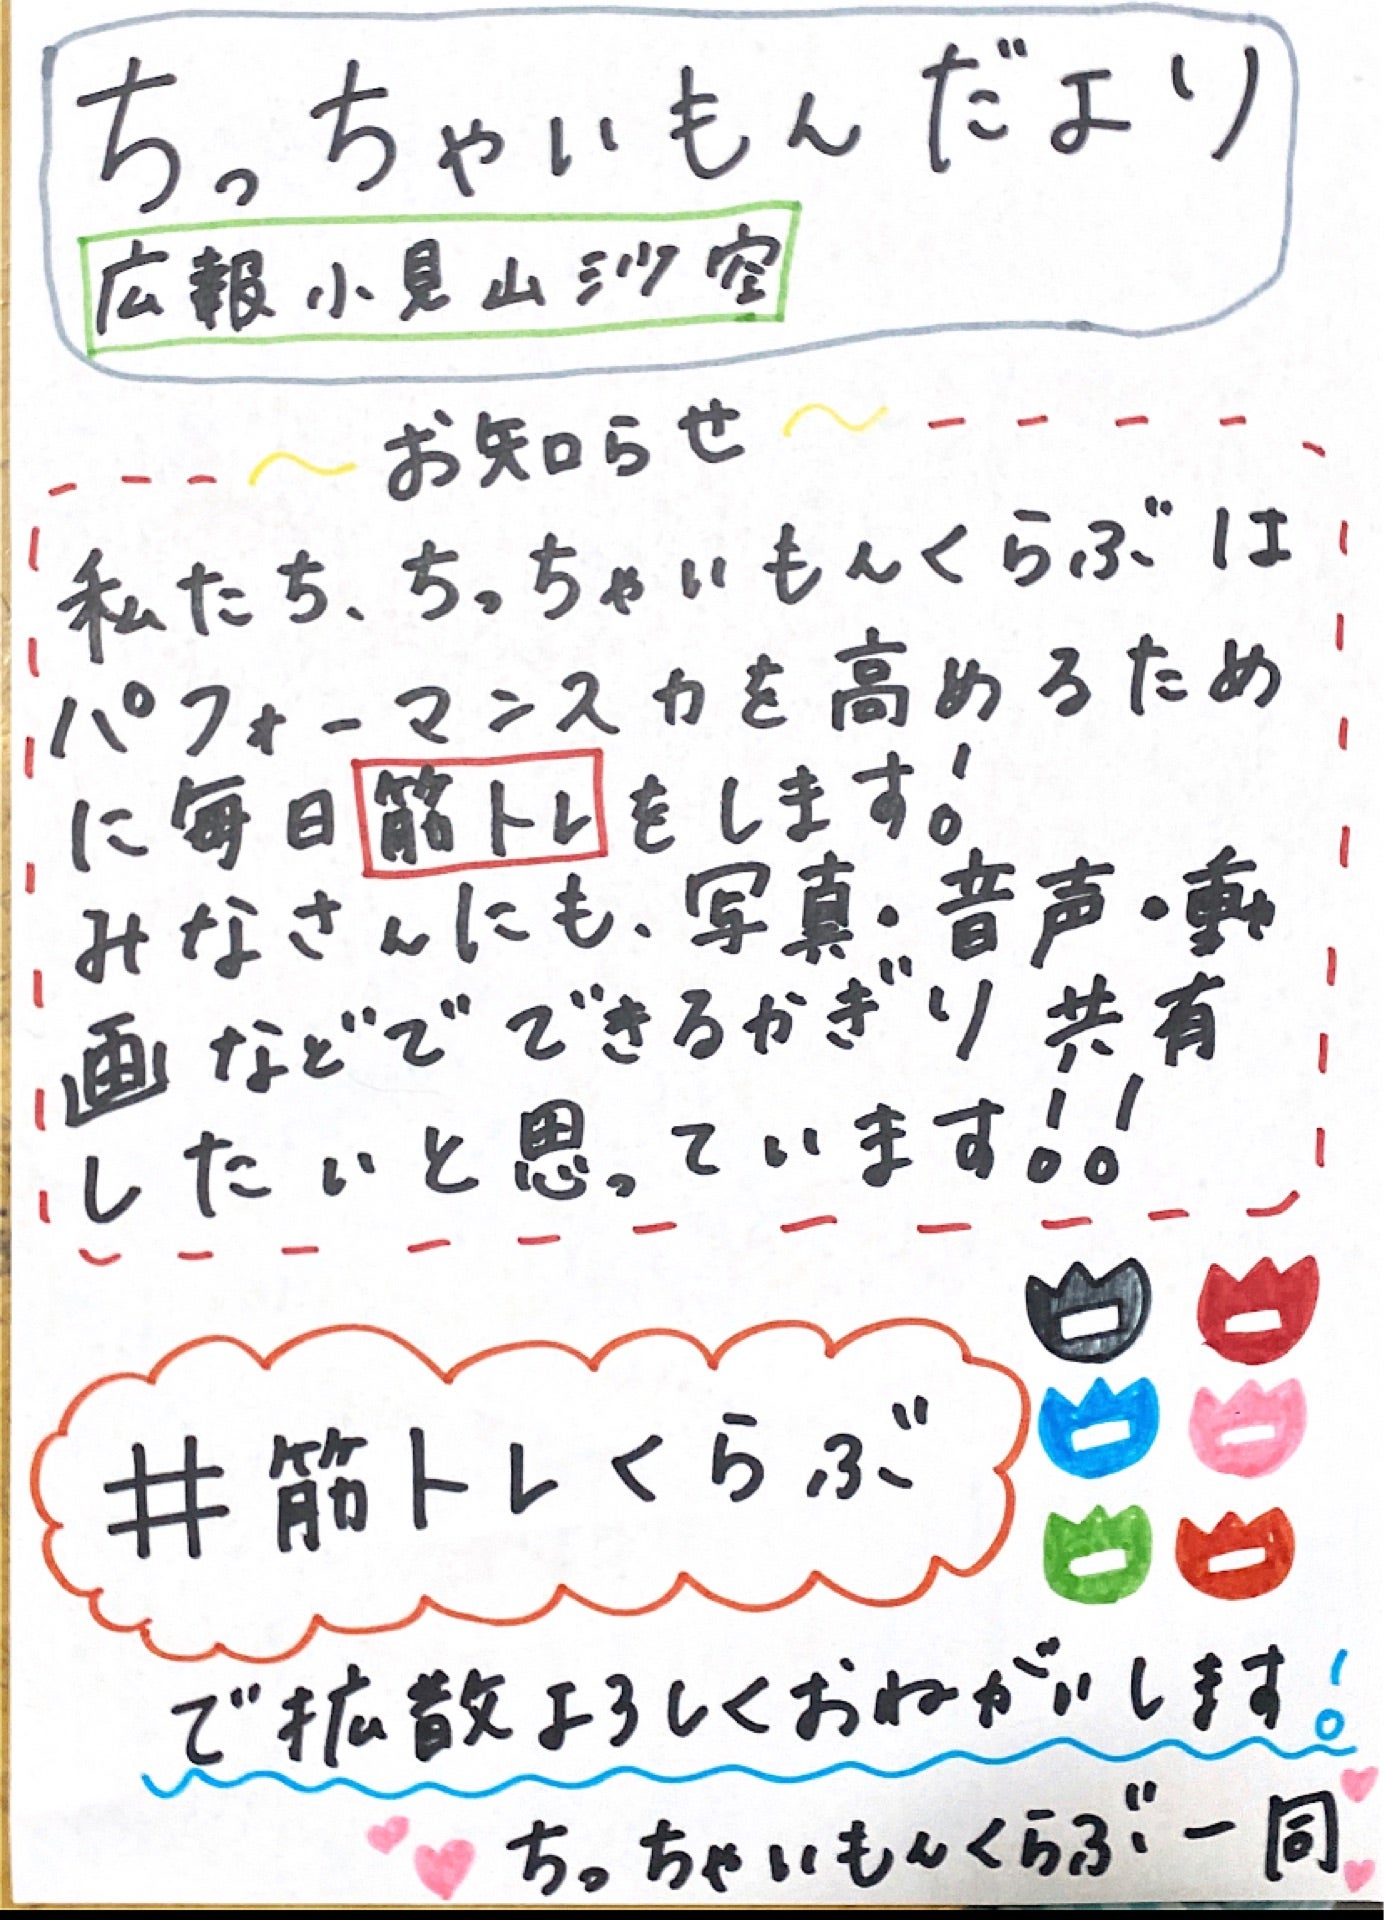 ちっちゃいもんだより
広報小見山沙空
お知らせ
私たち、ちっちゃいもんくらぶは
パフォーマンス力を高めるため
に毎日筋トレをします!
みなさんにも、写真・音声・動
画などでできるかぎり共有
したいと思っています!!
#筋トレくらぶ
で拡散よろしくおねがいします!
ちっちゃいもんくらぶ一同